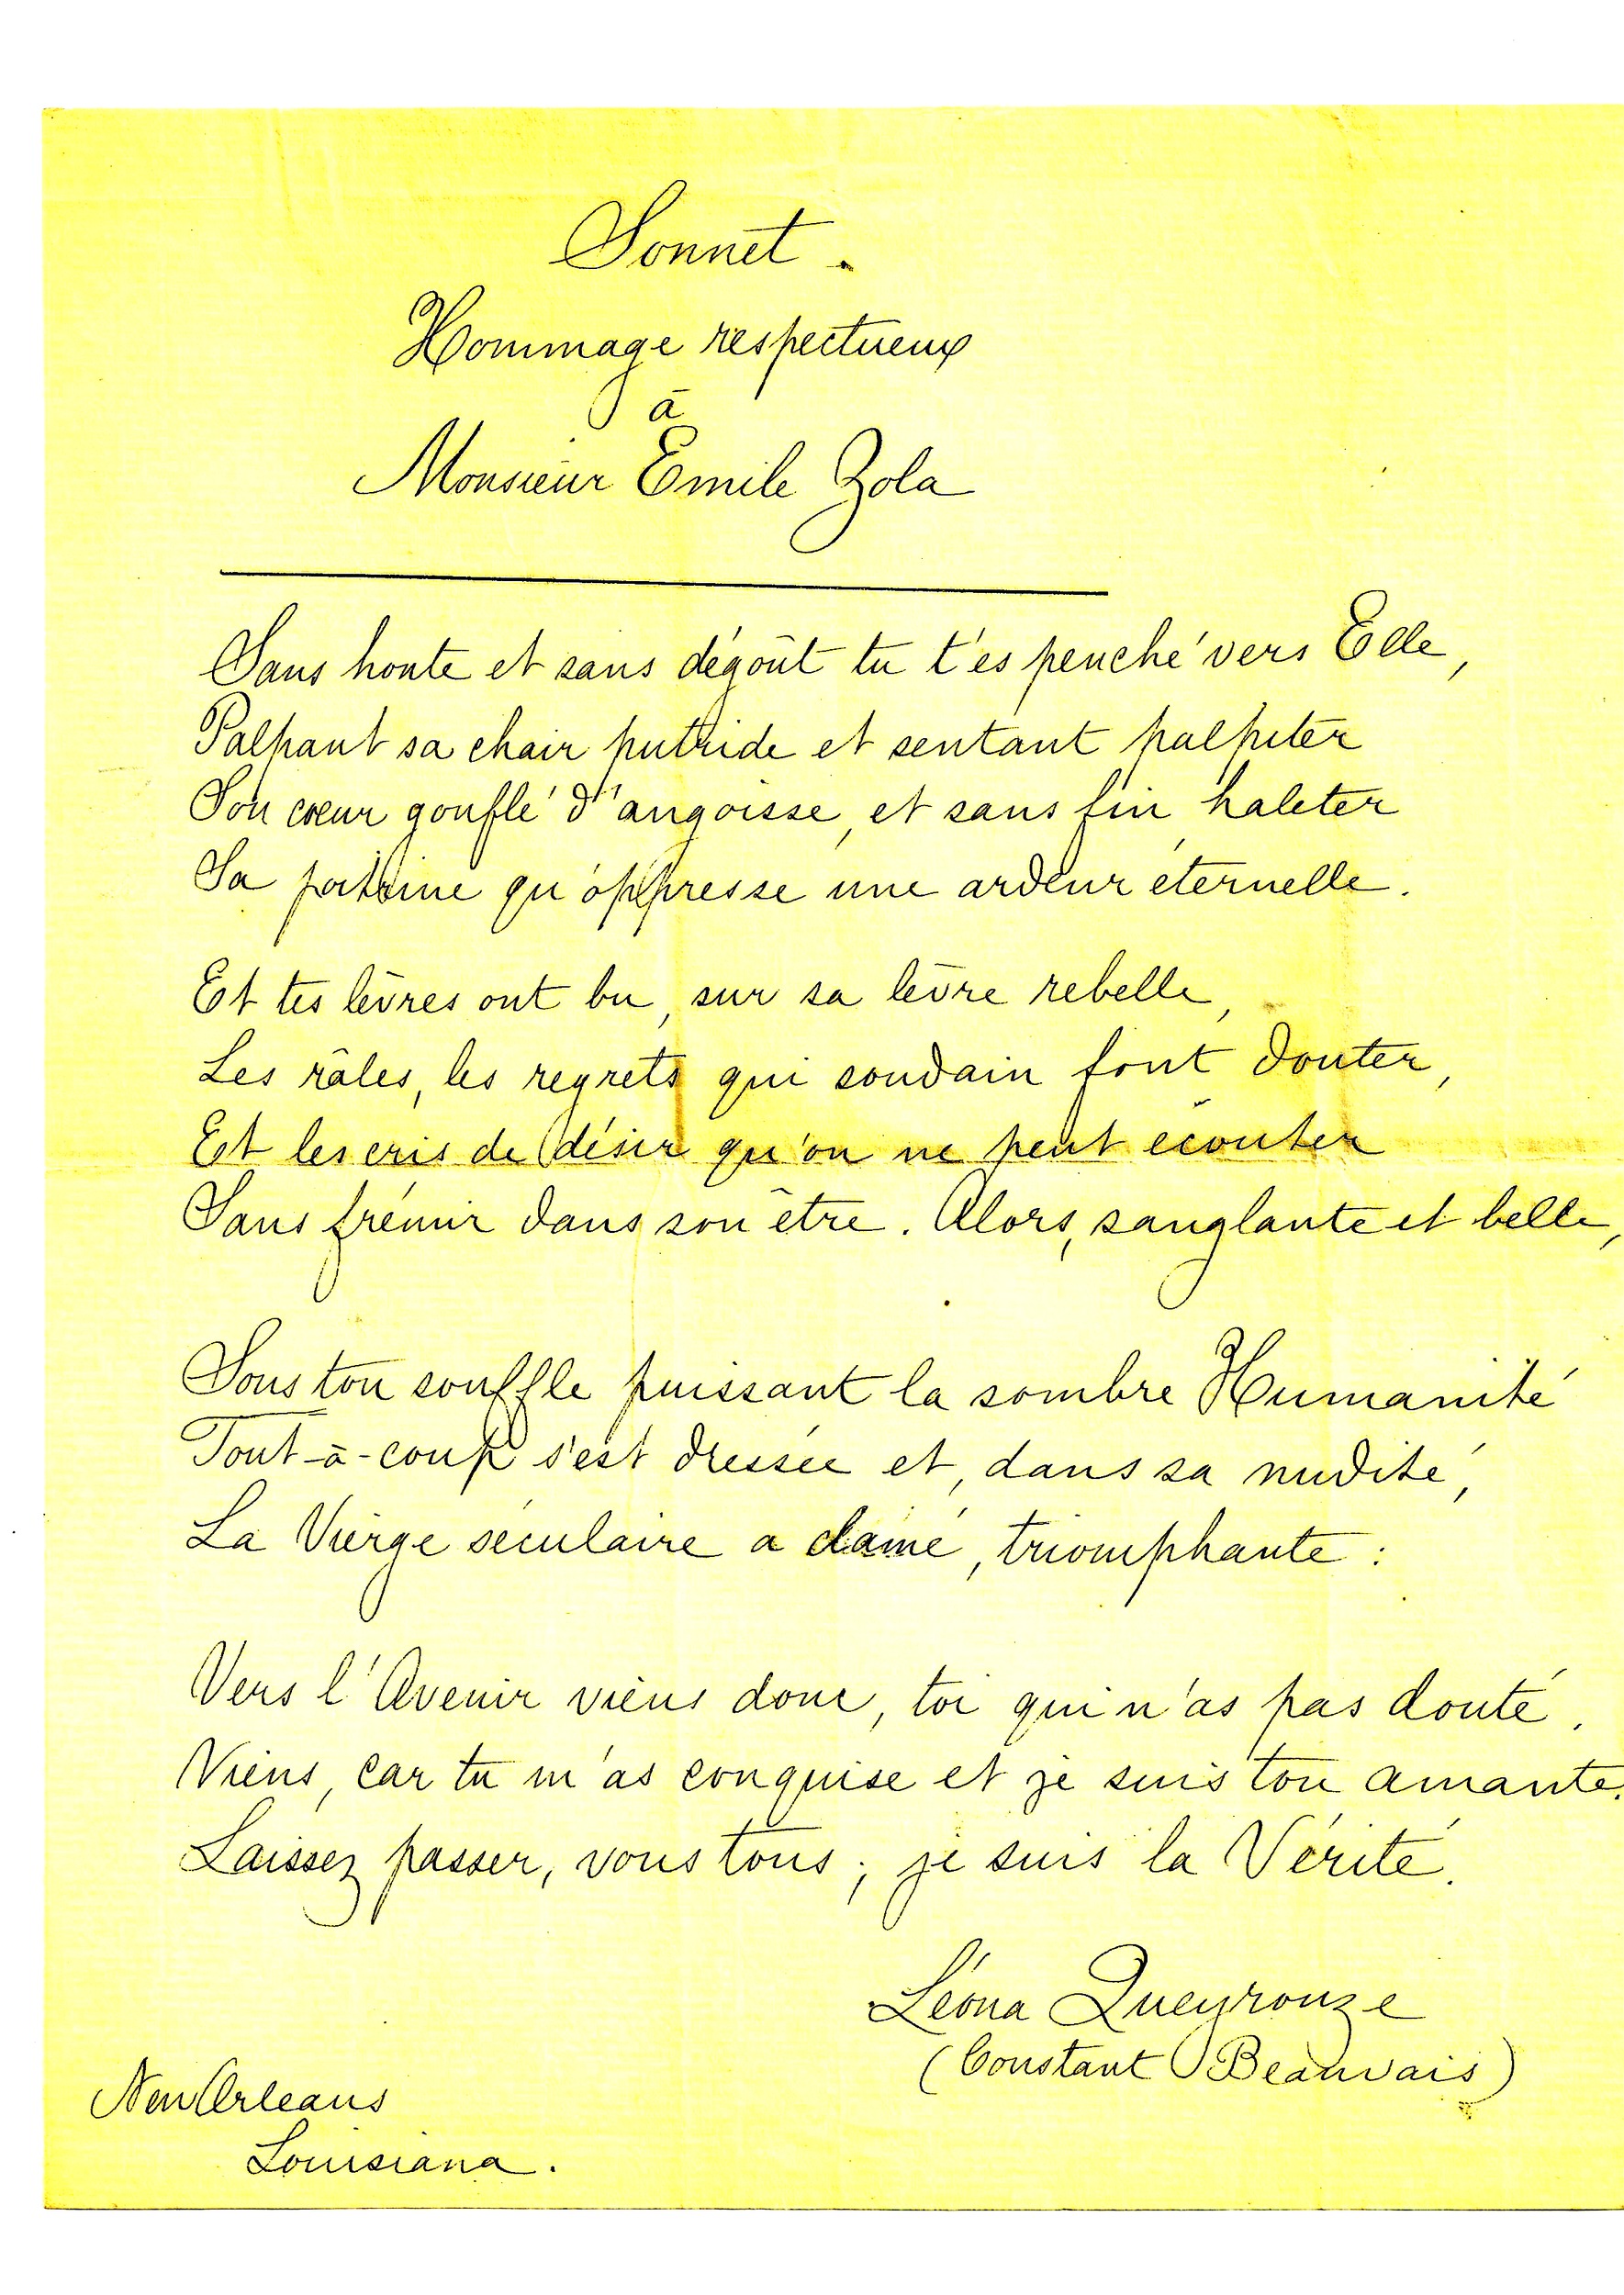 Sonnet.
Hommage respectueux
à
Monsieur Emile Zola
Sans honte et sans dégoût tu t'es penché vers Elle,
Palpant sa chair putride et sentant palpiter
Son cœur gonflé d'angoisse, et sans fin haleter
Sa poitrine qu'oppresse une ardeur éternelle.
Et tes lèvres ont bu, sur sa lèvre rebelle,
Les râles, les regrets qui soudain font douter,
Et les cris de désir qu'on ne peut écouter
Sans frémir dans son être. Alors, sanglante et belle,
Sous ton souffle puissant la sombre Humanité
Tout-à-coup s'est dressée et, dans sa nudité,
La Vierge séculaire a clamé, triomphante :
Vers l'Avenir viens donc, toi qui n'as pas douté.
Viens, car tu m'as conquise et je suis ton amante.
Laissez passer, vous tous ; je suis la Vérité.
Léona Queyrouze
(Constant Beauvais)
New Orleans
Louisiana.